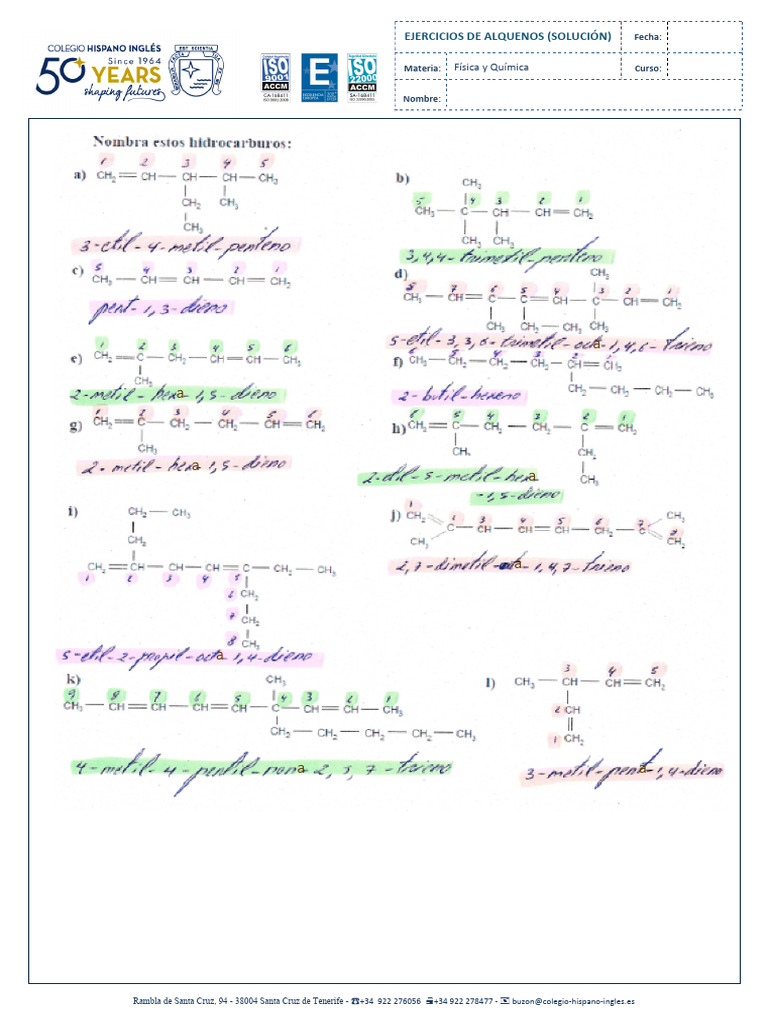 COLEGIO HISPANO INGLÉS
Since 1964
50 YEARS
shaping futures
ISO
9001
ACCM
ISO
22000
ACCM
EJERCICIOS DE ALQUENOS (SOLUCIÓN)
Fecha:
Materia: Física y Química
Curso:
Nombre:
Nombra estos hidrocarburos:
1 2 3 4 5
a) CH2 = CH — CH — CH — CH3
CH2 CH3
CH3
3-etil-4-metil-penteno
b)
CH3
5 4 3 2 1
CH3 — C — CH — CH = CH2
CH3 CH3
3,4,4-trimetil-penteno
c) 5 4 3 2 1
CH3 — CH = CH — CH = CH2
pent-1,3-dieno
d)
CH3
8 7 6 5 4 3 2 1
CH3 — CH = C — C = CH — C — CH = CH2
CH3 CH2 — CH3 CH3
5-etil-3,3,6-trimetil-octa-1,4,6-trieno
e) 1 2 3 4 5 6
CH2 = C — CH2 — CH = CH — CH3
CH3
2-metil-hexa 1,5-dieno
f) 6 5 4 3 2 1
CH3 — CH2 — CH2 — CH2 — C = CH2
CH2 — CH2 — CH2 — CH3
2-butil-hexeno
g) 1 2 3 4 5 6
CH2 = C — CH2 — CH2 — CH = CH2
CH3
2-metil-hexa 1,5-dieno
h) 6 5 4 3 2 1
CH2 = C — CH2 — CH2 — C = CH2
CH3 CH2
CH3
2-etil-5-metil-hexa
-1,5-dieno
i)
CH2 — CH3
CH2
CH2 = CH — CH — CH = C — CH2 — CH3
1 2 3 4 5
6 CH2
7 CH2
8 CH3
5-etil-2-propil-octa 1,4-dieno
j) 1 CH2 2 3 4 5 6 7 CH3
C — CH — CH = CH — CH2 — C
CH3 8 CH2
2,7-dimetil-octa-1,4,7-trieno
k)
CH3
9 8 7 6 5 4 3 2 1
CH3 — CH = CH — CH = CH — C — CH = CH — CH3
CH2 — CH2 — CH2 — CH2 — CH3
4-metil-4-pentil-nona 2,5,7-trieno
l) 3 4 5
CH3 — CH — CH = CH2
2 CH
1 CH2
3-metil-penta-1,4-dieno
Rambla de Santa Cruz, 94 - 38004 Santa Cruz de Tenerife - ☎+34 922 276056 +34 922 278477 - buzon@colegio-hispano-ingles.es